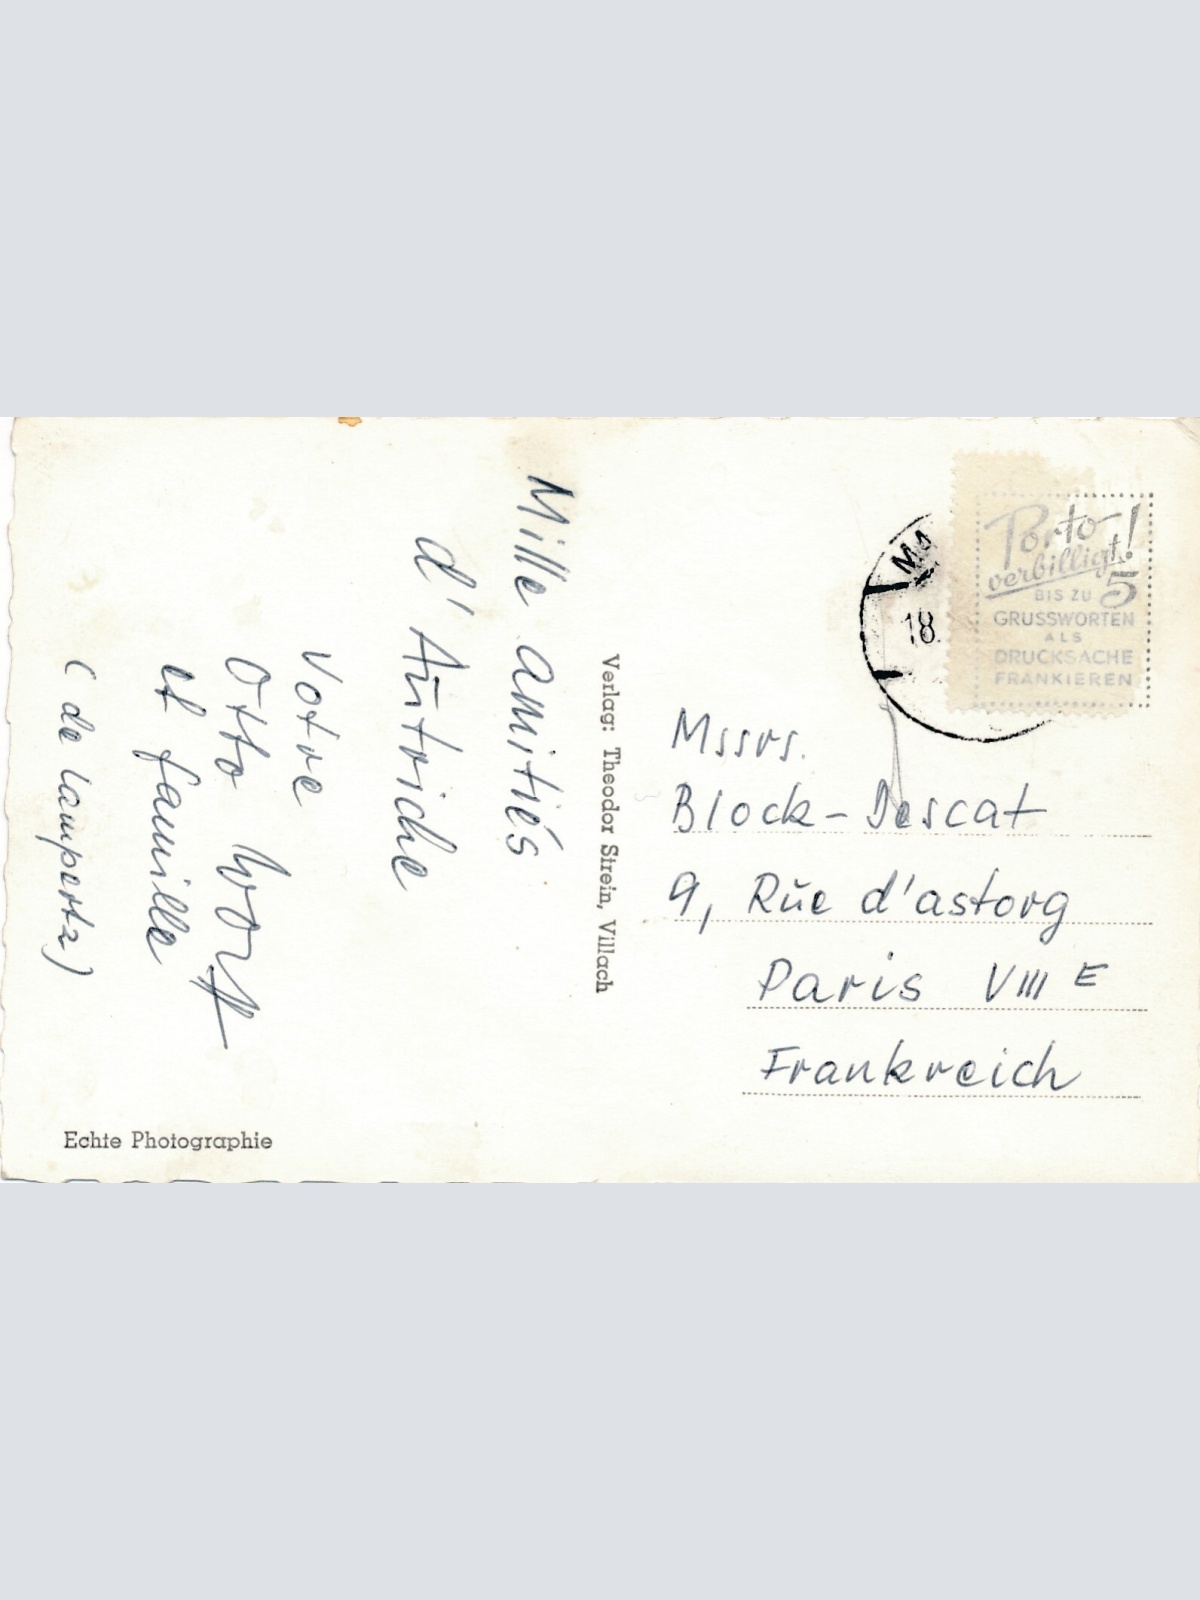 Mille amitiés
d'Autriche
Votre
Otto
et famille
(de Lampertz)
Verlag: Theodor Strein, Villach
Echte Photographie
18.
Porto
verbilligt!
BIS ZU 5
GRUSSWORTEN
ALS
DRUCKSACHE
FRANKIEREN
Mssrs.
Block-Descat
9, Rŭe d'astorg
Paris VIII E
Frankreich